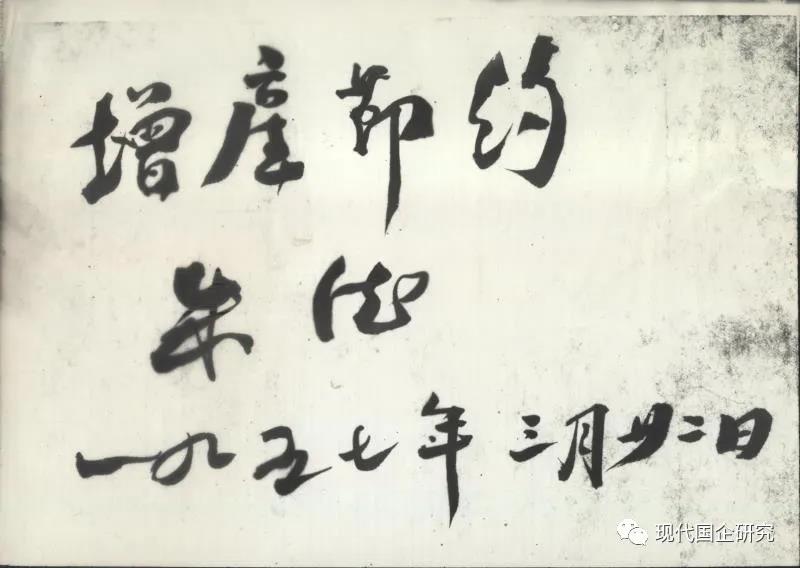 增産节约
朱德
一九五七年三月廿二日
现代国企研究